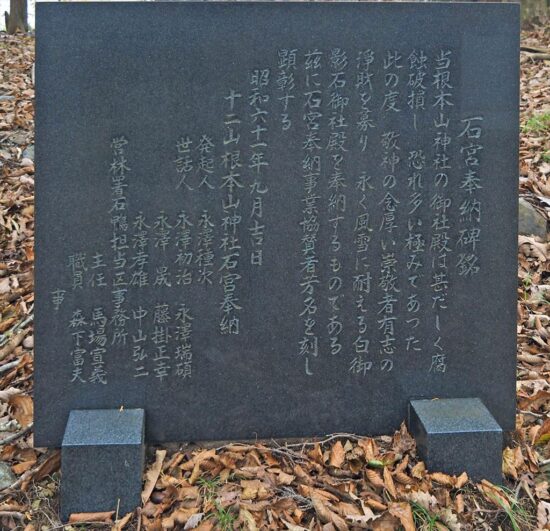 石宮奉納碑銘
当根本山神社の御社殿は甚だしく腐
蝕破損し 恐れ多い極みであった
此の度 敬神の念厚い崇敬者有志の
浄財を募り 永く風雪に耐える白御
影石御社殿を奉納するものである
茲に石宮奉納事業協賛者芳名を刻し
顕彰する
昭和六十一年九月吉日
十二山根本山神社石宮奉納
発起人 永澤種次 永澤瑞碩
世話人 永澤初治 藤掛正幸
永澤 晟 中山弘二
永澤孝雄
営林署石鴨担当区事務所
主任 馬場宣義
職員 森下富夫
事